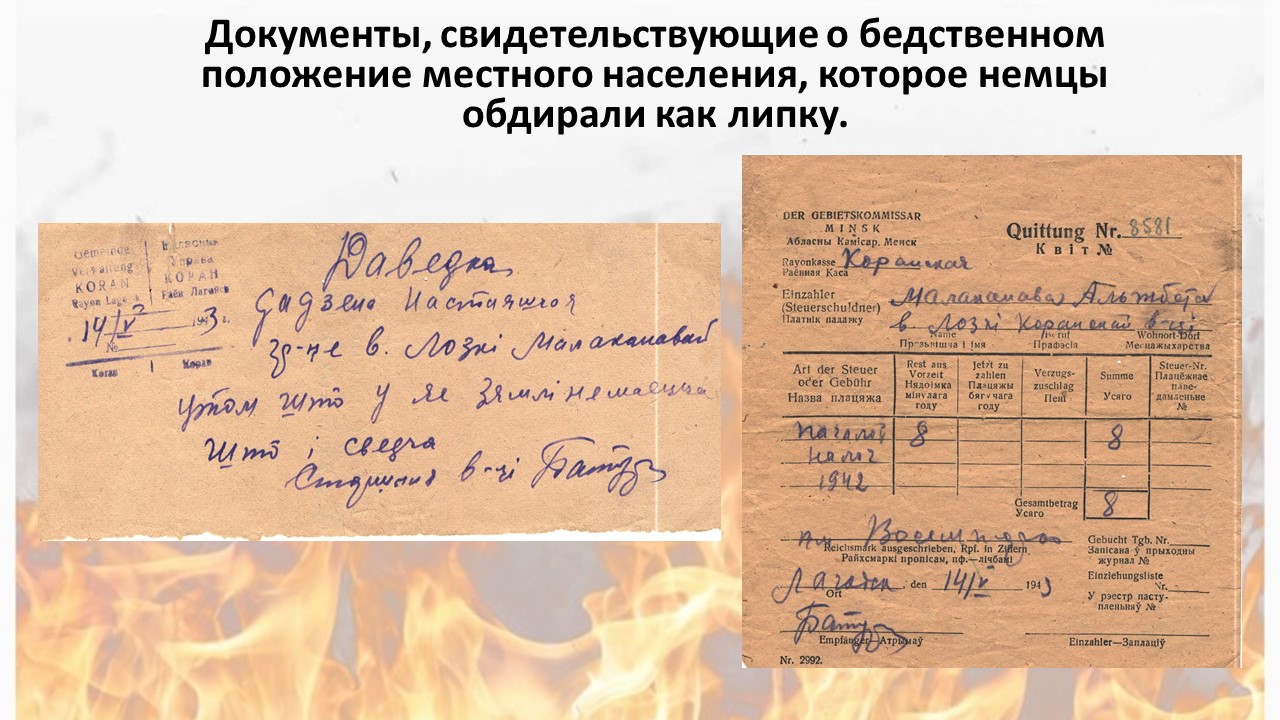 Документы, свидетельствующие о бедственном
положение местного населения, которое немцы
обдирали как липку.
Gemeinde
Verwaltung
KORAN
Rayon
Управа
КОРАН
Раён Лагойск
14/V 1943 г.
№
Koran | Коран
Даведка
Дадзена Настаяшчая
гр-не в. Лозкі Малаканавай
у том што у яе Зямлі немаецца
што і сведча
Старшыня в-ці
DER GEBIETSKOMMISSAR
MINSK
Абласны Камісар, Менск
Rayonkasse Коранская
Раённая Каса
Quittung Nr. 8581
Квіт №
Einzahler
(Steuerschuldner)
Платнік падатку
Малаканава Альжбета
в. Лозкі Коранскай в-ці
Name
Прозьвішча і імя
Beruf
Прафэсія
Wohnort-Dorf
Месцажыхарства
Art der Steuer
oder Gebühr
Назва плацяжа
Rest aus
Vorzeit
Нядоімка
мінулага
году
Jetzt zu
zahlen
Плацяжы
бягучага
году
Verzugs-
zuschlag
Пені
Summe
Усяго
Steuer-Nr.
Плацёжнае
паве-
дамленьне
№
8 8
1942
Gesamtbetrag
Усяго
8
Восем
Reichsmark ausgeschrieben, Rpf. in Ziffern
Райхсмаркі пропісам, пф.—лічбамі
Лагойск, den 14/V 1943
Ort
Gebucht Tgb. Nr.
Запісана ў прыходны
журнал №
Einziehungsliste
Nr.
У рэестр пасту-
пленьняў №
Empfänger—Атрымаў
Einzahler—Заплаціў
Nr. 2992.